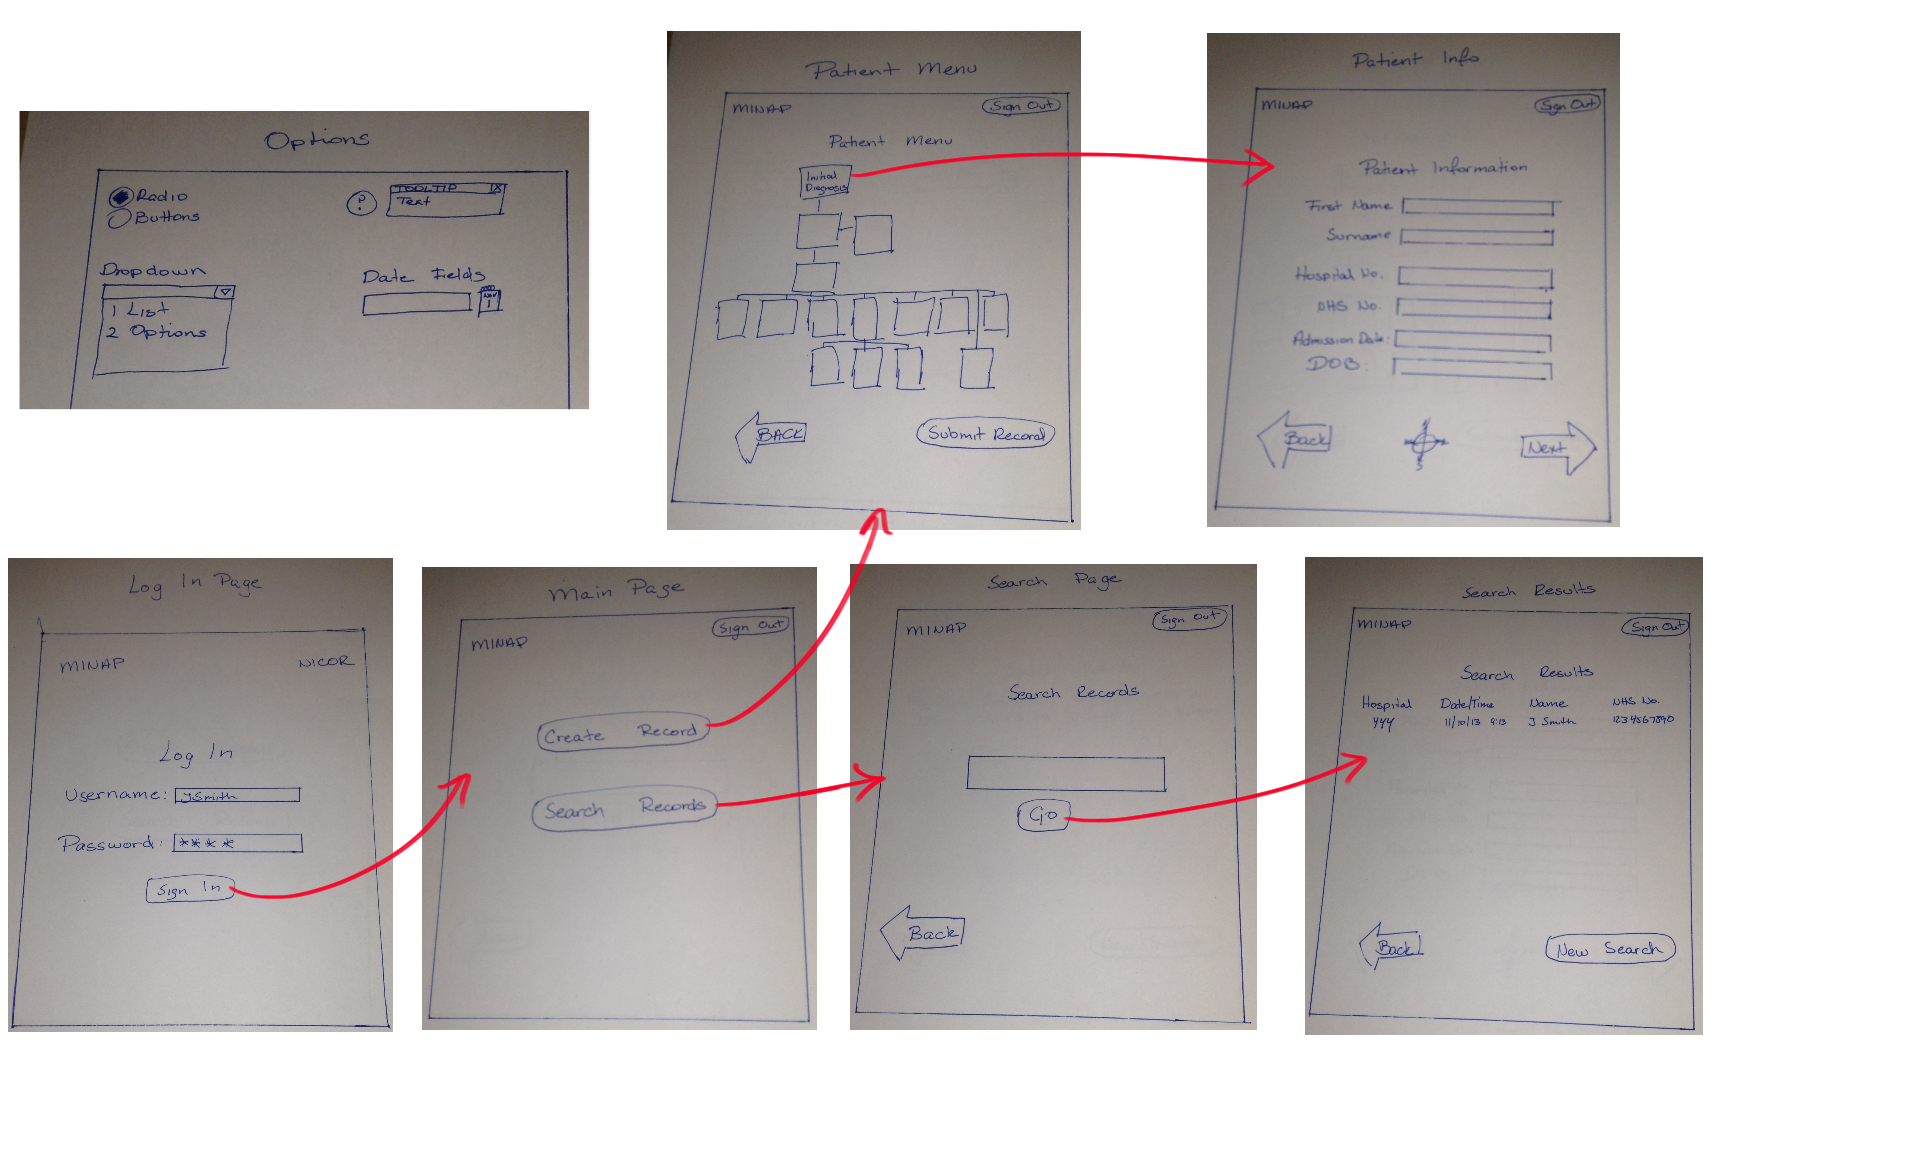 Options
Radio
Buttons
?
TOOLTIP X
Text
Dropdown
1 List
2 Options
Date Fields
1
Patient Menu
MINAP
Sign Out
Patient Menu
Initial
Diagnosis
BACK
Submit Record
Patient Info
MINAP
Sign Out
Patient Information
First Name
Surname
Hospital No.
NHS No.
Admission Date:
DOB:
Back
Next
Log In Page
MINAP NICOR
Log In
Username: JSmith
Password: ****
Sign In
Main Page
MINAP
Sign Out
Create Record
Search Records
Search Page
MINAP
Sign Out
Search Records
Go
Back
Search Results
MINAP
Sign Out
Search Results
Hospital Date/Time Name NHS No.
YYY 11/10/13 9:13 J Smith 1234567890
Back
New Search